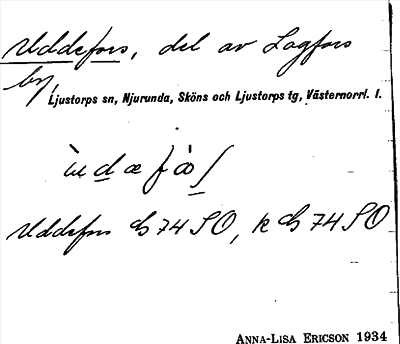 Uddefors, del av Lagfors
by,
Ljustorps sn, Njurunda, Sköns och Ljustorps tg, Västernorrl. l.
Uddefors G 74 SO, k G 74 SO
ANNA-LISA ERICSON 1934